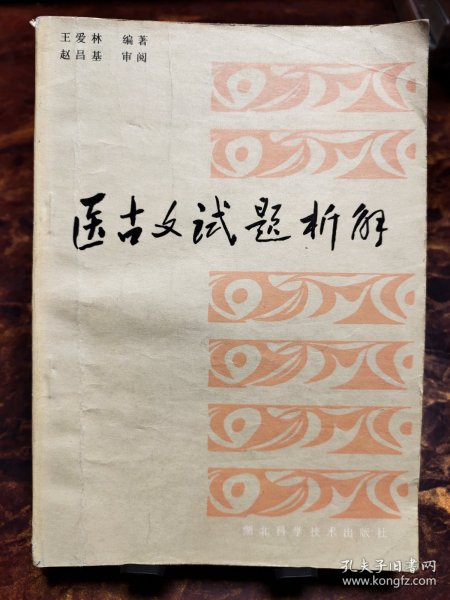 王爱林 编著
赵昌基 审阅
医古文试题析解
湖北科学技术出版社
孔夫子旧书网
www.kongfz.com